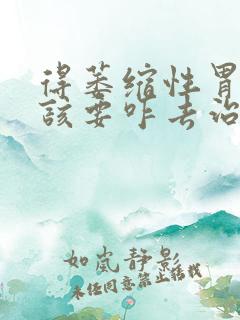 得萎缩性胃
该要咋去治
如岚静影
未经同意禁止搭载